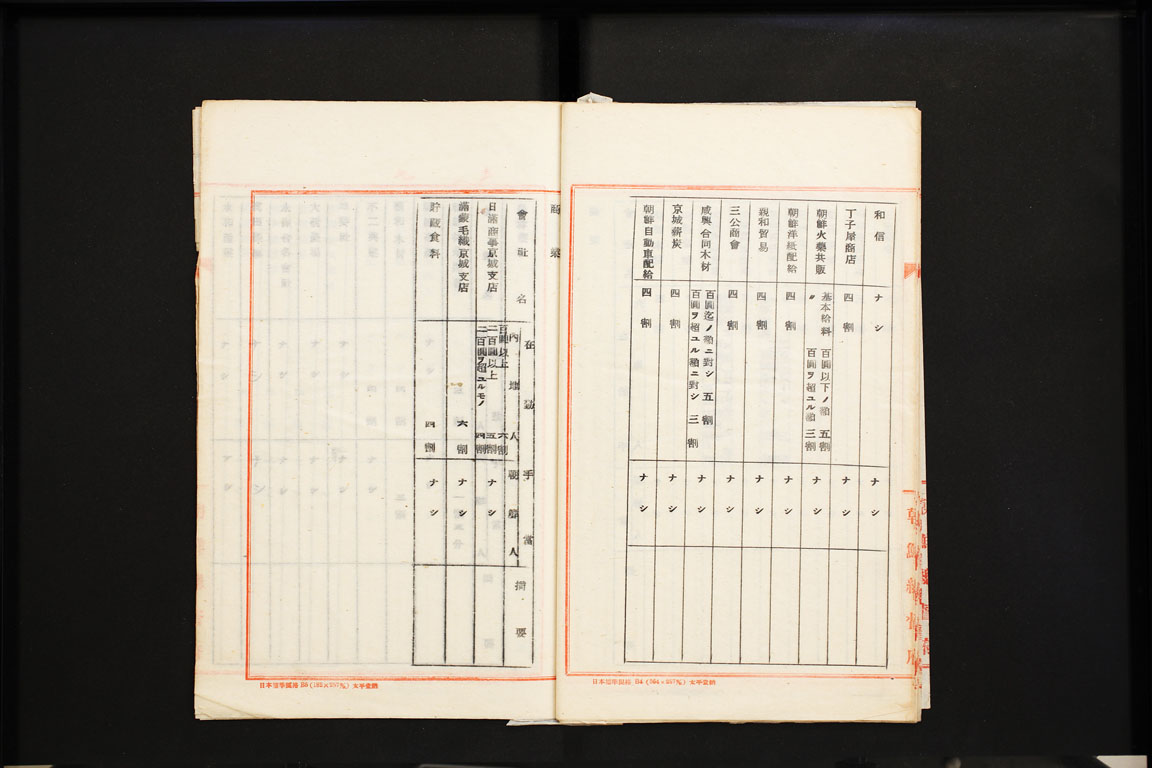 和信 ナシ ナシ
丁子屋商店 四割 ナシ
朝鮮火藥共販 基本給料 百圓以下ノ額 五割 ナシ
〃 百圓ヲ超ユル額 三割
朝鮮洋紙配給 四割 ナシ
親和貿易 四割 ナシ
三公商會 四割 ナシ
咸興合同木材 百圓迄ノ額ニ對シ 五割 ナシ
百圓ヲ超ユル額ニ對シ 三割
京城薪炭 四割 ナシ
朝鮮自動車配給 四割 ナシ
商業
會社名 在勤手當 摘要
內地人 朝鮮人
日滿商事京城支店 百圓以上 六割 ナシ
二百圓以上 五割
二百圓ヲ超ユルモノ 四割
滿蒙毛織京城支店 六割 ナシ
貯藏食料 四割 ナシ
朝鮮總督府
日本標準規格 B4 (364×257㎜) 太平堂納
日本標準規格 B5 (182×257㎜) 太平堂納